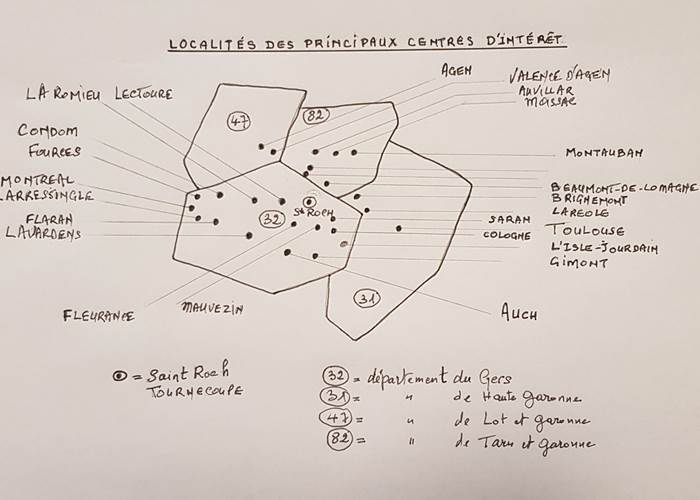 LOCALITÉS DES PRINCIPAUX CENTRES D'INTÉRÊT
AGEN
VALENCE D'AGEN
AUVILLAR
MOISSAC
LA ROMIEU LECTOURE
47
82
CONDOM
FOURCES
MONTAUBAN
MONTREAL
LARRESSINGLE
BEAUMONT-DE-LOMAGNE
BRIGNEMONT
LAREOLE
FLARAN
LAVARDENS
32
St ROCH
SARAN
COLOGNE
TOULOUSE
L'ISLE-JOURDAIN
GIMONT
31
FLEURANCE
MAUVEZIN
AUCH
= Saint Roch
TOURNECOUPE
32 = département du Gers
31 = " de Haute Garonne
47 = " de Lot et garonne
82 = " de Tarn et garonne